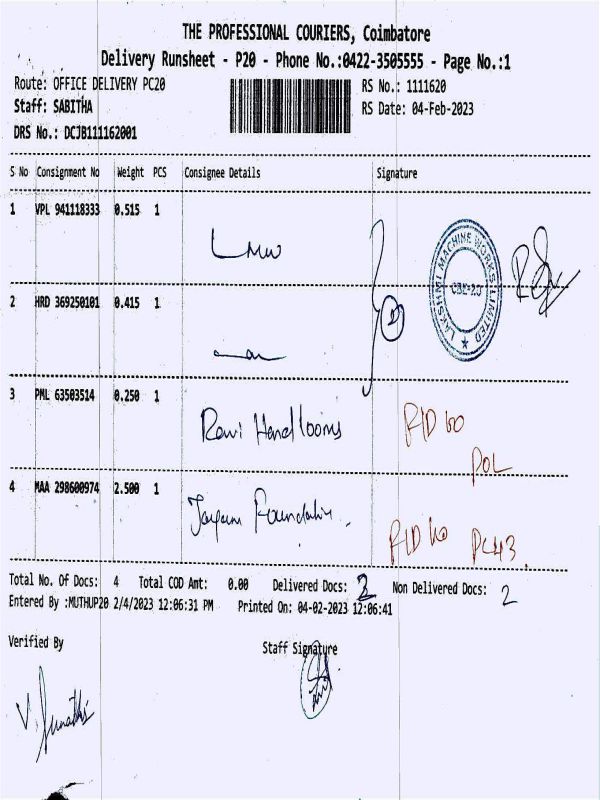 THE PROFESSIONAL COURIERS, Coimbatore
Delivery Runsheet - P20 - Phone No.:0422-3505555 - Page No.:1
Route: OFFICE DELIVERY PC20 RS No.: 1111620
Staff: SABITHA RS Date: 04-Feb-2023
DRS No.: DCJB111162001
S No Consignment No Weight PCS Consignee Details Signature
1 VPL 941118333 0.515 1 LMW
LAKSHMI MACHINE WORKS LIMITED
CBE-20
2 HRD 369250101 0.415 1
2
3 PML 63503514 0.250 1 Ravi Handlooms
POL
4 MAA 298600974 2.500 1 Jayam Foundation
PC43
Total No. Of Docs: 4 Total COD Amt: 0.00 Delivered Docs: 2 Non Delivered Docs: 2
Entered By :MUTHUP20 2/4/2023 12:06:31 PM Printed On: 04-02-2023 12:06:41
Verified By Staff Signature